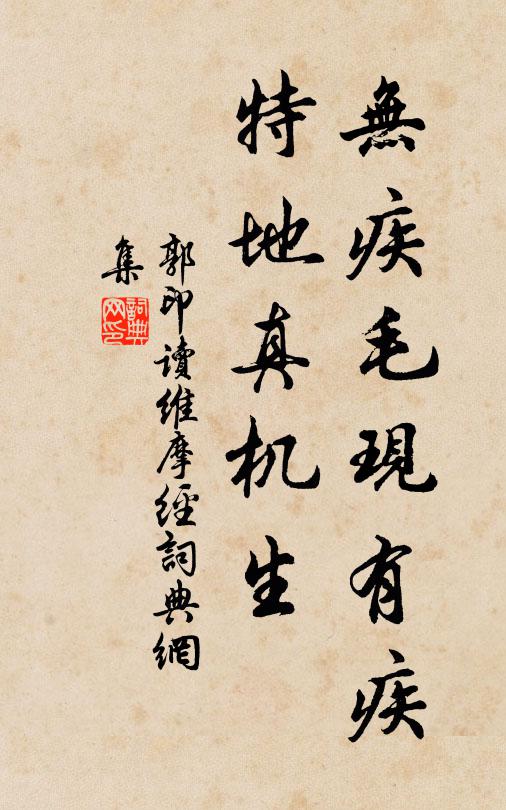 無疾毛現有疾
特地真机生
郭印讀維摩經詞典網
集
詞典网印